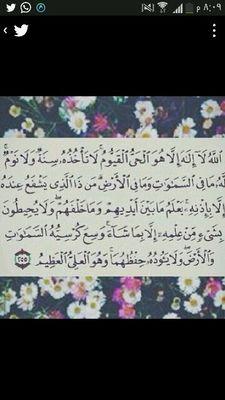 ٨:٠٩ م
اللَّهُ لَا إِلَٰهَ إِلَّا هُوَ الْحَيُّ الْقَيُّومُ لَا تَأْخُذُهُ سِنَةٌ وَلَا نَوْمٌ
لَّهُ مَا فِي السَّمَاوَاتِ وَمَا فِي الْأَرْضِ مَن ذَا الَّذِي يَشْفَعُ عِندَهُ
إِلَّا بِإِذْنِهِ يَعْلَمُ مَا بَيْنَ أَيْدِيهِمْ وَمَا خَلْفَهُمْ وَلَا يُحِيطُونَ
بِشَيْءٍ مِّنْ عِلْمِهِ إِلَّا بِمَا شَاءَ وَسِعَ كُرْسِيُّهُ السَّمَاوَاتِ
وَالْأَرْضَ وَلَا يَئُودُهُ حِفْظُهُمَا وَهُوَ الْعَلِيُّ الْعَظِيمُ ٢٥٥